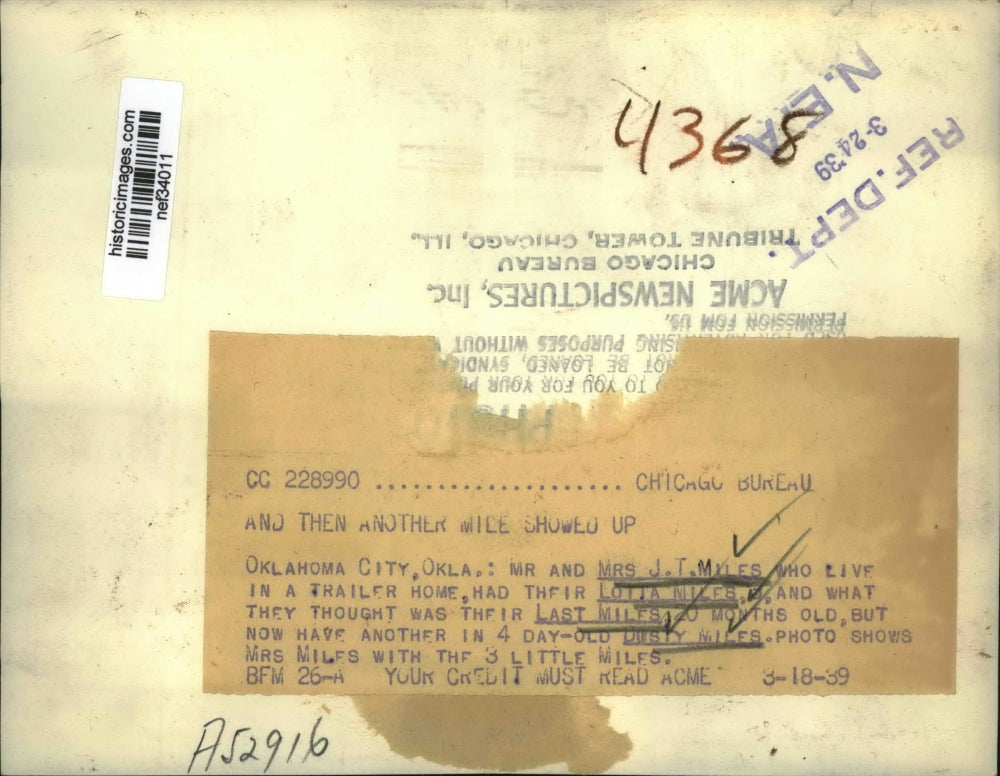 historicimages.com
nef34011
4368
N. E. A.
3-24-39
REF. DEPT.
TRIBUNE TOWER, CHICAGO, ILL.
CHICAGO BUREAU
ACME NEWSPICTURES, Inc.
PERMISSION FOM US.
SING PURPOSES WITHOUT
NOT BE LOANED, SYNDICA
TO YOU FOR YOUR
CC 228990 ...................... CHICAGO BUREAU
AND THEN ANOTHER MILE SHOWED UP
OKLAHOMA CITY,OKLA.: MR AND MRS J.T.MILES WHO LIVE
IN A TRAILER HOME,HAD THEIR LOTTA MILES, AND WHAT
THEY THOUGHT WAS THEIR LAST MILES, 20 MONTHS OLD,BUT
NOW HAVE ANOTHER IN 4 DAY-OLD DUSTY MILES.PHOTO SHOWS
MRS MILES WITH THE 3 LITTLE MILES.
BFM 26-A YOUR CREDIT MUST READ ACME 3-18-39
A52916